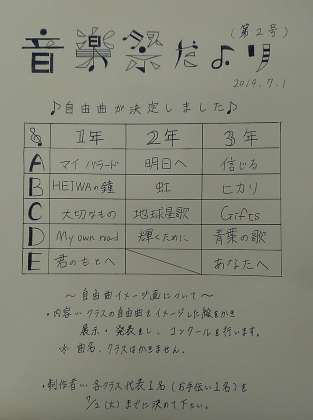 音楽祭だより
(第2号)
2019.7.1
♪自由曲が決定しました♪
1年 2年 3年
A マイバラード 明日へ 信じる
B HEIWAの鐘 虹 ヒカリ
C 大切なもの 地球星歌 Gifts
D My own road 輝くために 青葉の歌
E 君のもとへ あなたへ
～自由曲イメージ画について～
・内容… クラスの自由曲をイメージした絵をかき
展示・発表をし、コンクールを行います。
※ 曲名、クラスはかきません。
・制作者… 各クラス代表1名(お手伝い1名)を
7/2(火)までに決めて下さい。